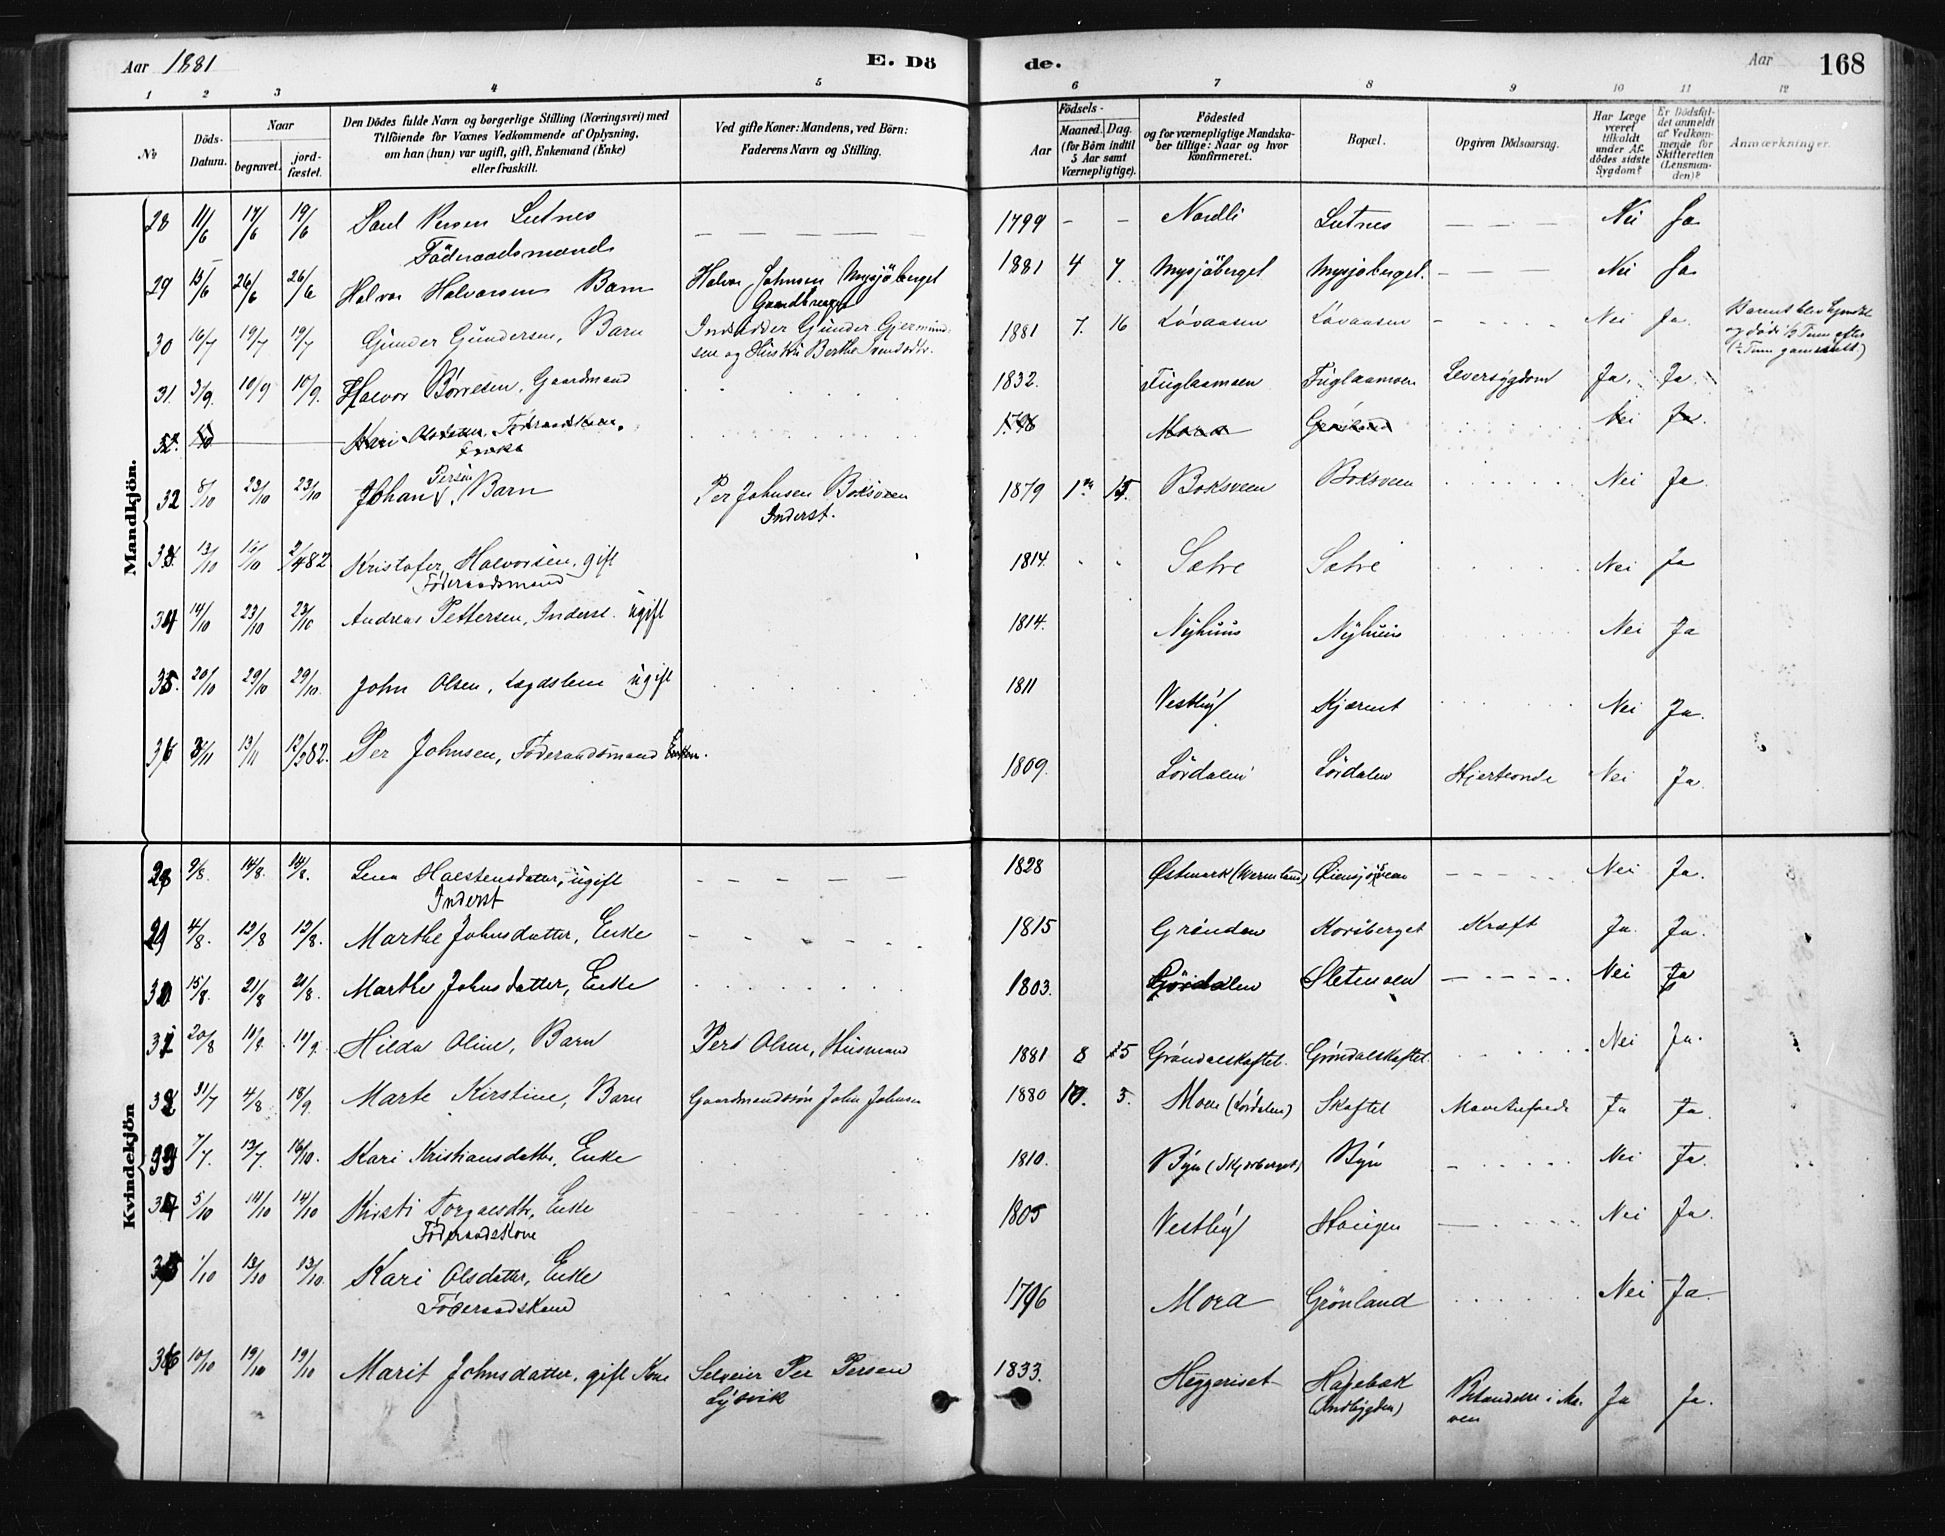 Aar 1881 E. Dö de. Aar 168
1 2 3 4 5 6 7 8 9 10 11 12
No
Döds-Datum.
Naar
begravet.
jord-fæstet.
Den Dödes fulde Navn og borgerlige Stilling (Næringsvei) med
Tilföiende for Voxnes Vedkommende af Oplysning,
om han (hun) var ugift, gift, Enkemand (Enke)
eller fraskilt.
Ved gifte Koner: Mandens, ved Börn:
Faderens Navn og Stilling.
Födsels-
Aar
Maaned. Dag.
(for Börn indtil
5 Aar samt
Værnepligtige).
Födested
og for værnepligtige Mandska-
ber tillige: Naar og hvor
konfirmeret.
Bopæl.
Opgiven Dödsaarsag.
Har Læge
været
tilkaldt
under Af-
dödes sidste
Sygdom?
Er Dödsfal-
det anmeldt
af Vedkom-
mende for
Skifteretten
(Lensman-
den)?
Anmærkninger.
Mandkjön.
28 11/6 17/6 19/6 Paul Persen Lutnes 1799 - - Nordli Lutnes - - - Nei Ja
Föderaadsmand
29 15/6 26/6 26/6 Halvor Halvorsen Barn Halvor Johnsen Mysjöberget 1881 4 7 Mysjöberget Mysjöberget. - - - Nei Ja
Gaardbruger
30 16/7 19/7 19/7 Gunder Gundersen, Barn Inderst Gunder Gjermund- 1881 7. 16 Lövaasen Lövaasen - - - Nei Ja. Barnet blev hjemdöbt
sen og Hustru Berthe Svendsdtr. og döde 1/2 Time efter
31. 3/9. 10/9 10/9. Halvor Börresen, Gaardmand 1832. Fuglaamoen Fuglaamoen Leversygdom Ja. Ja.
Kari Olsdatter, Föderaadskone, 1796 Mora Grönland Nei Ja.
Enke
32 8/10 23/10 23/10 Johan Persen, Barn Per Johnsen Boksveen 1879 15. Boksveen Boksveen Nei Ja
Inderst.
33 13/10 16/10 2/4 82 Kristofer Halvorsen, gift 1814. Sætre Sætre Nei Ja
Föderaadsmand
34 14/10 23/10 23/10 Andreas Pettersen, Inderst. ugift 1814. Nyhuus Nyhuus Nei Ja
35. 20/10 29/10 29/10. John Olsen, Lægdslem ugift 1811 Vestby Kjærnet Nei Ja.
36 8/11 13/11 12/3 82. Per Johnsen, Föderaadsmand Enkem. 1809. Lördalen Lördalen Hjerteonde Nei Ja.
Kvindekjön
28 9/8. 14/8. 14/8. Lena Halstensdatter, ugift 1828 Östmark (Wermland) Öiensjöveen - - - Nei Ja.
Inderst
29 4/8. 13/8 13/8. Marthe Johnsdatter, Enke 1815 Grönden Korsberget Kræft Ja. Ja.
30 15/8. 21/8 21/8. Marthe Johnsdatter, Enke 1803. Gördalen Sletmoen - - - Nei Ja
31 20/8 11/9. 11/9. Hilda Oline, Barn Peter Olsen, Husmand 1881 8 25 Gröndalskaftet. Gröndalskaftet. Nei Ja.
32 31/7 4/8 18/9. Marte Kirstine, Barn Gaardmandssön John Johnsen 1880 10. 5. Moen (Lördalen) Skaftet Ja Ja.
33 7/7. 13/7. 16/10. Kari Kristiansdatter, Enke 1810. Byn Byn - - - Nei Ja.
34 5/10 14/10 14/10 Kirsti Torgalsdtr, Enke 1805 Vestby Haugen Nei Ja.
Föderaadskone
35 1/10 13/10 13/10. Kari Olsdatter, Enke 1796 Mora Grönland Nei Ja.
Föderaadskone
36 10/10 19/10 19/10 Marit Johnsdatter, gift Kone Selveier Per Persen 1833. Heggeriset Hagebak Betændelse i Ma- Ja Ja.
(Indbygden) ven